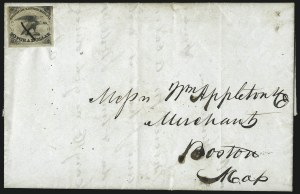 Messrs Wm Appleton & Co
Merchants
Boston
Mas